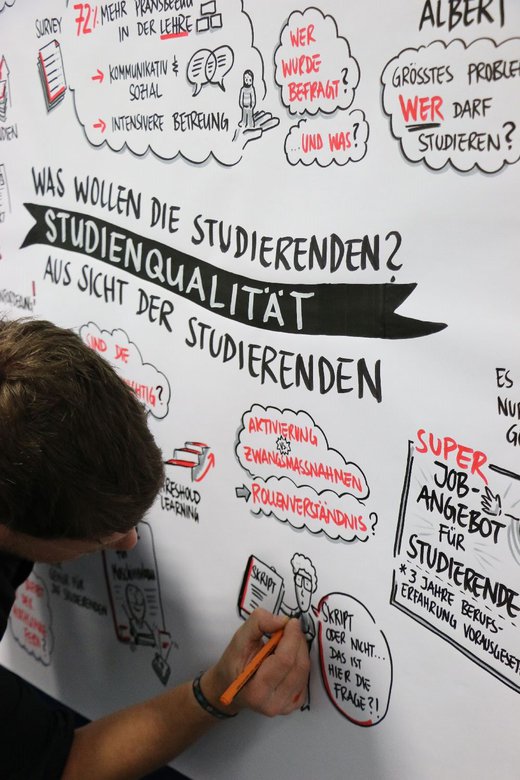 SURVEY
72% MEHR PRÄSBEDARF
IN DER LEHRE
→ KOMMUNIKATIV &
SOZIAL
→ INTENSIVERE BETREUUNG
WER
WURDE
BEFRAGT?
...UND WAS?
ALBERT
GRÖSSTES PROBLEM
WER DARF
STUDIEREN?
WAS WOLLEN DIE STUDIERENDEN?
STUDIENQUALITÄT
AUS SICHT DER STUDIERENDEN
SIND DIE
AKTIVIERUNG
ZWANGSMASSNAHMEN
→ ROLLENVERSTÄNDNIS?
THRESHOLD
LEARNING
ES
NUR
SUPER
JOB-
ANGEBOT
FÜR
STUDIERENDE
*3 JAHRE BERUFS-
ERFAHRUNG VORAUSGESET
SKRIPT
SKRIPT
ODER NICHT...
DAS IST
HIER DIE
FRAGE?!